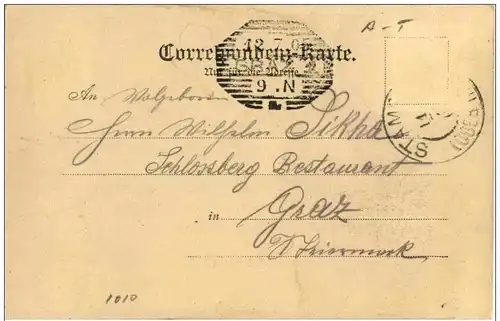 A-T
12.7.05
Correspondenz-Karte.
Nur für die Adresse
GRAZ 2
9.N
An Wolgeboren
STAM
Herrn Wilhelm Sikha
Schlossberg Restaurant
in Graz
Steiermark
1010